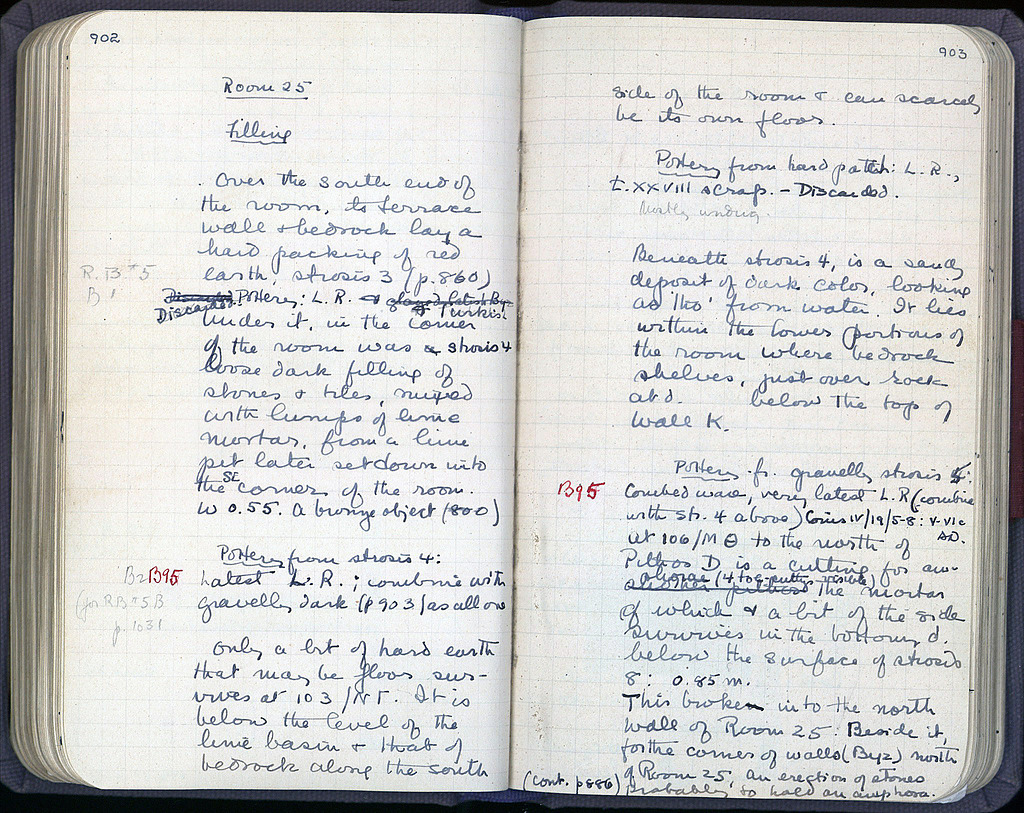 902
Room 25
Filling
Over the south end of
the room, to terrace
wall & bedrock lay a
hard packing of red
earth, strosis 3 (p. 860)
R. B # 5
B 1
Discarded Pottery: L. R. & glazed, latest Byz
Discarded. & Turkish
Under it, in the corner
of the room was a strosis 4
loose dark filling of
stones & tiles, mixed
with lumps of lime
mortar, from a lime
pit later set down into
the SE corner of the room.
W 0.55. A bronze object (800)
Pottery from strosis 4:
B2 B95
Latest L. R.; combine with
gravelly dark (p 903) as all one
for RB #5B
p. 1031
Only a bit of hard earth
that may be floor sur-
vives at 103/NT. It is
below the level of the
lime basin & that of
bedrock along the south
903
side of the room & can scarcely
be its own floor.
Pottery from hard patch: L. R.,
t. XXVIII scrap. - Discarded.
Mostly undug.
Beneath strosis 4, is a sandy
deposit of dark color, looking
as tho' from water. It lies
within the lower portions of
the room where bedrock
shelves, just over rock
at d. below the top of
wall K.
Pottery fr. gravelly strosis 5:
B95
Combed ware, very latest L. R (combine
with str. 4 above) Coins IV/19/5-8: V-VIc
AD.
at 106/MΘ to the north of
Pithos D is a cutting for an-
other (4 to 6 putts. visible)
another pithos The mortar
of which & a bit of the side
survives in the bottom, d.
below the surface of strosis
8: 0.85 m.
This broken into the north
wall of Room 25: Beside it,
for the corner of walls (Byz) north
of Room 25, an erection of stones
(cont. p 886) probably to hold an amphora.